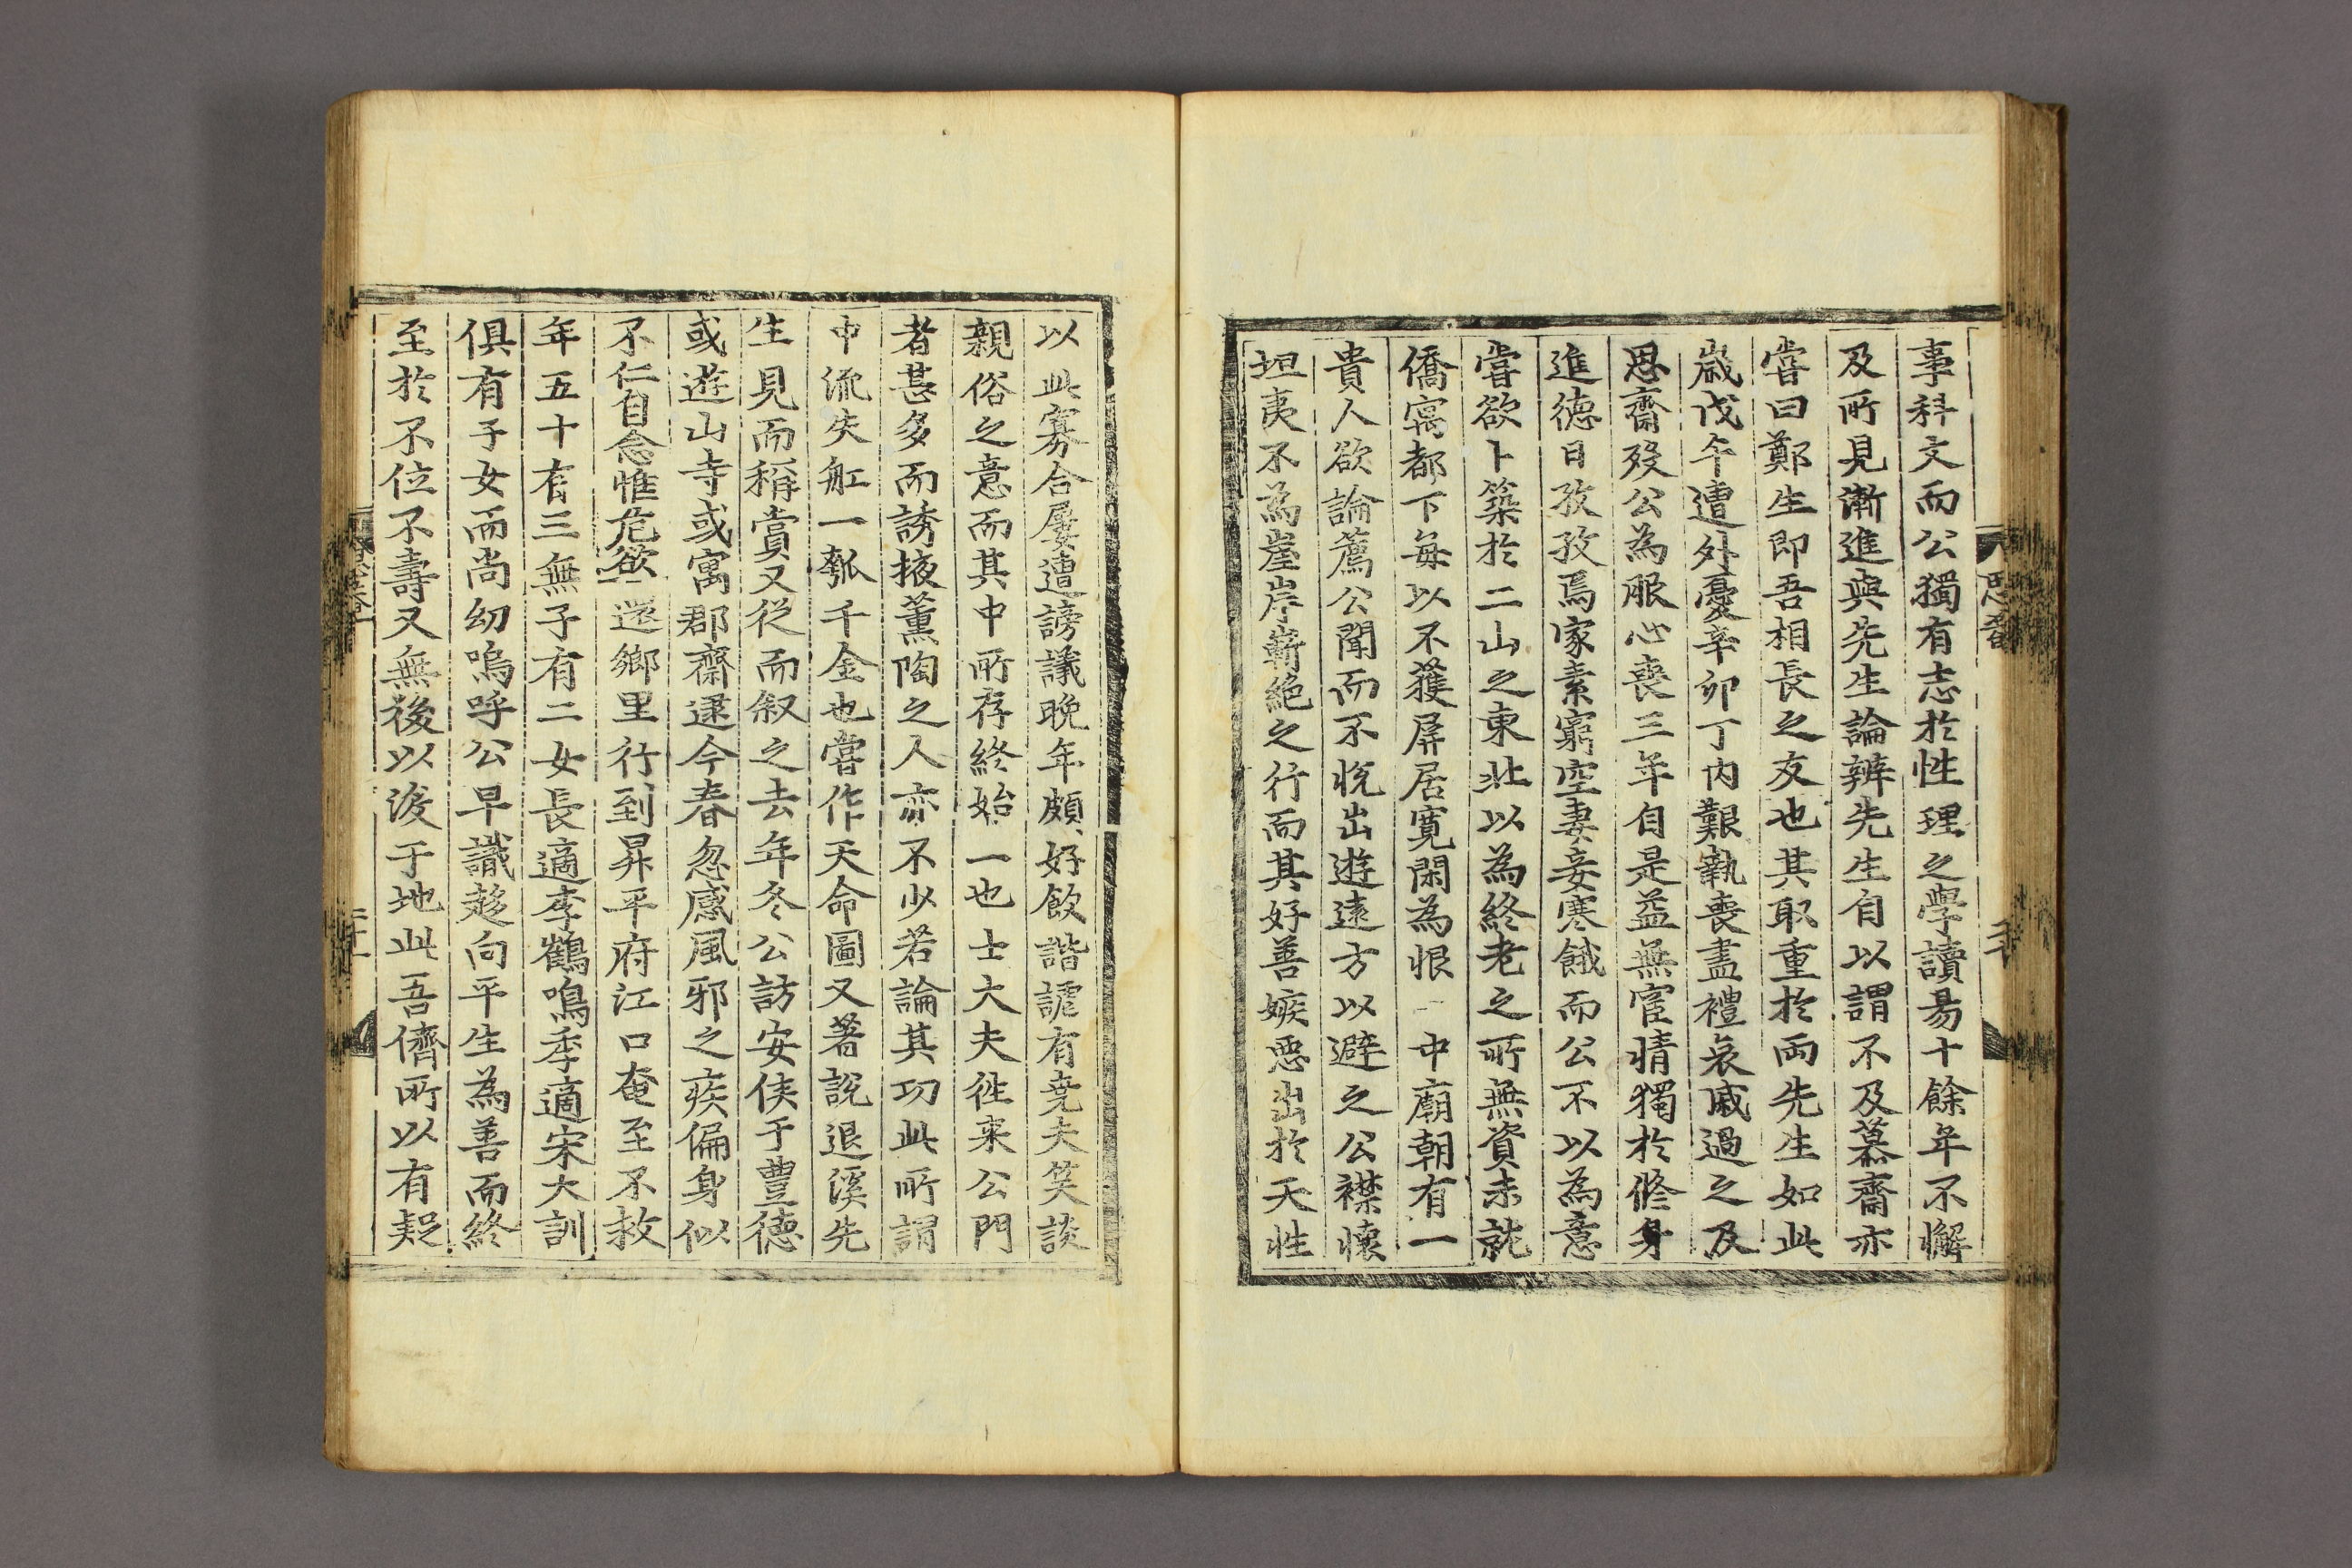 事科文而公獨有志於性理之學讀易十餘年不懈
及所見漸進與先生論辨先生自以謂不及慕齋亦
嘗曰鄭生即吾相長之友也其取重於両先生如此
歲戊午遭外憂辛卯丁内艱執喪盡禮哀戚過之及
思齋歿公為服心喪三年自是益無宦情獨於修身
進德日孜孜焉家素窮空妻妾寒餓而公不以為意
嘗欲卜築於二山之東北以為終老之所無資未就
僑寓都下每以不獲屏居寬閑為恨 中廟朝有一
貴人欲論薦公聞而不悅出遊遠方以避之公襟懷
坦夷不為崖岸嶄絕之行而其好善嫉惡出於天性
以此寡合屢遭謗議晚年頗好飲諧謔有尭夫笑談
親俗之意而其中所存終始一也士大夫徃来公門
者甚多而誘掖薰陶之人亦不少若論其功此所謂
中流失舡一瓠千金也嘗作天命圖又著說退溪先
生見而稱賞又從而叙之去年冬公訪安侯于豊德
或遊山寺或寓郡齋逮今春忽感風邪之疾偏身似
不仁自念惟危欲還鄉里行到昇平府江口奄至不救
年五十有三無子有二女長適李鶴鳴季適宋大訓
俱有子女而尚幼嗚呼公早識趍向平生為善而終
至於不位不壽又無後以湲于地此吾儕所以有疑
思齋